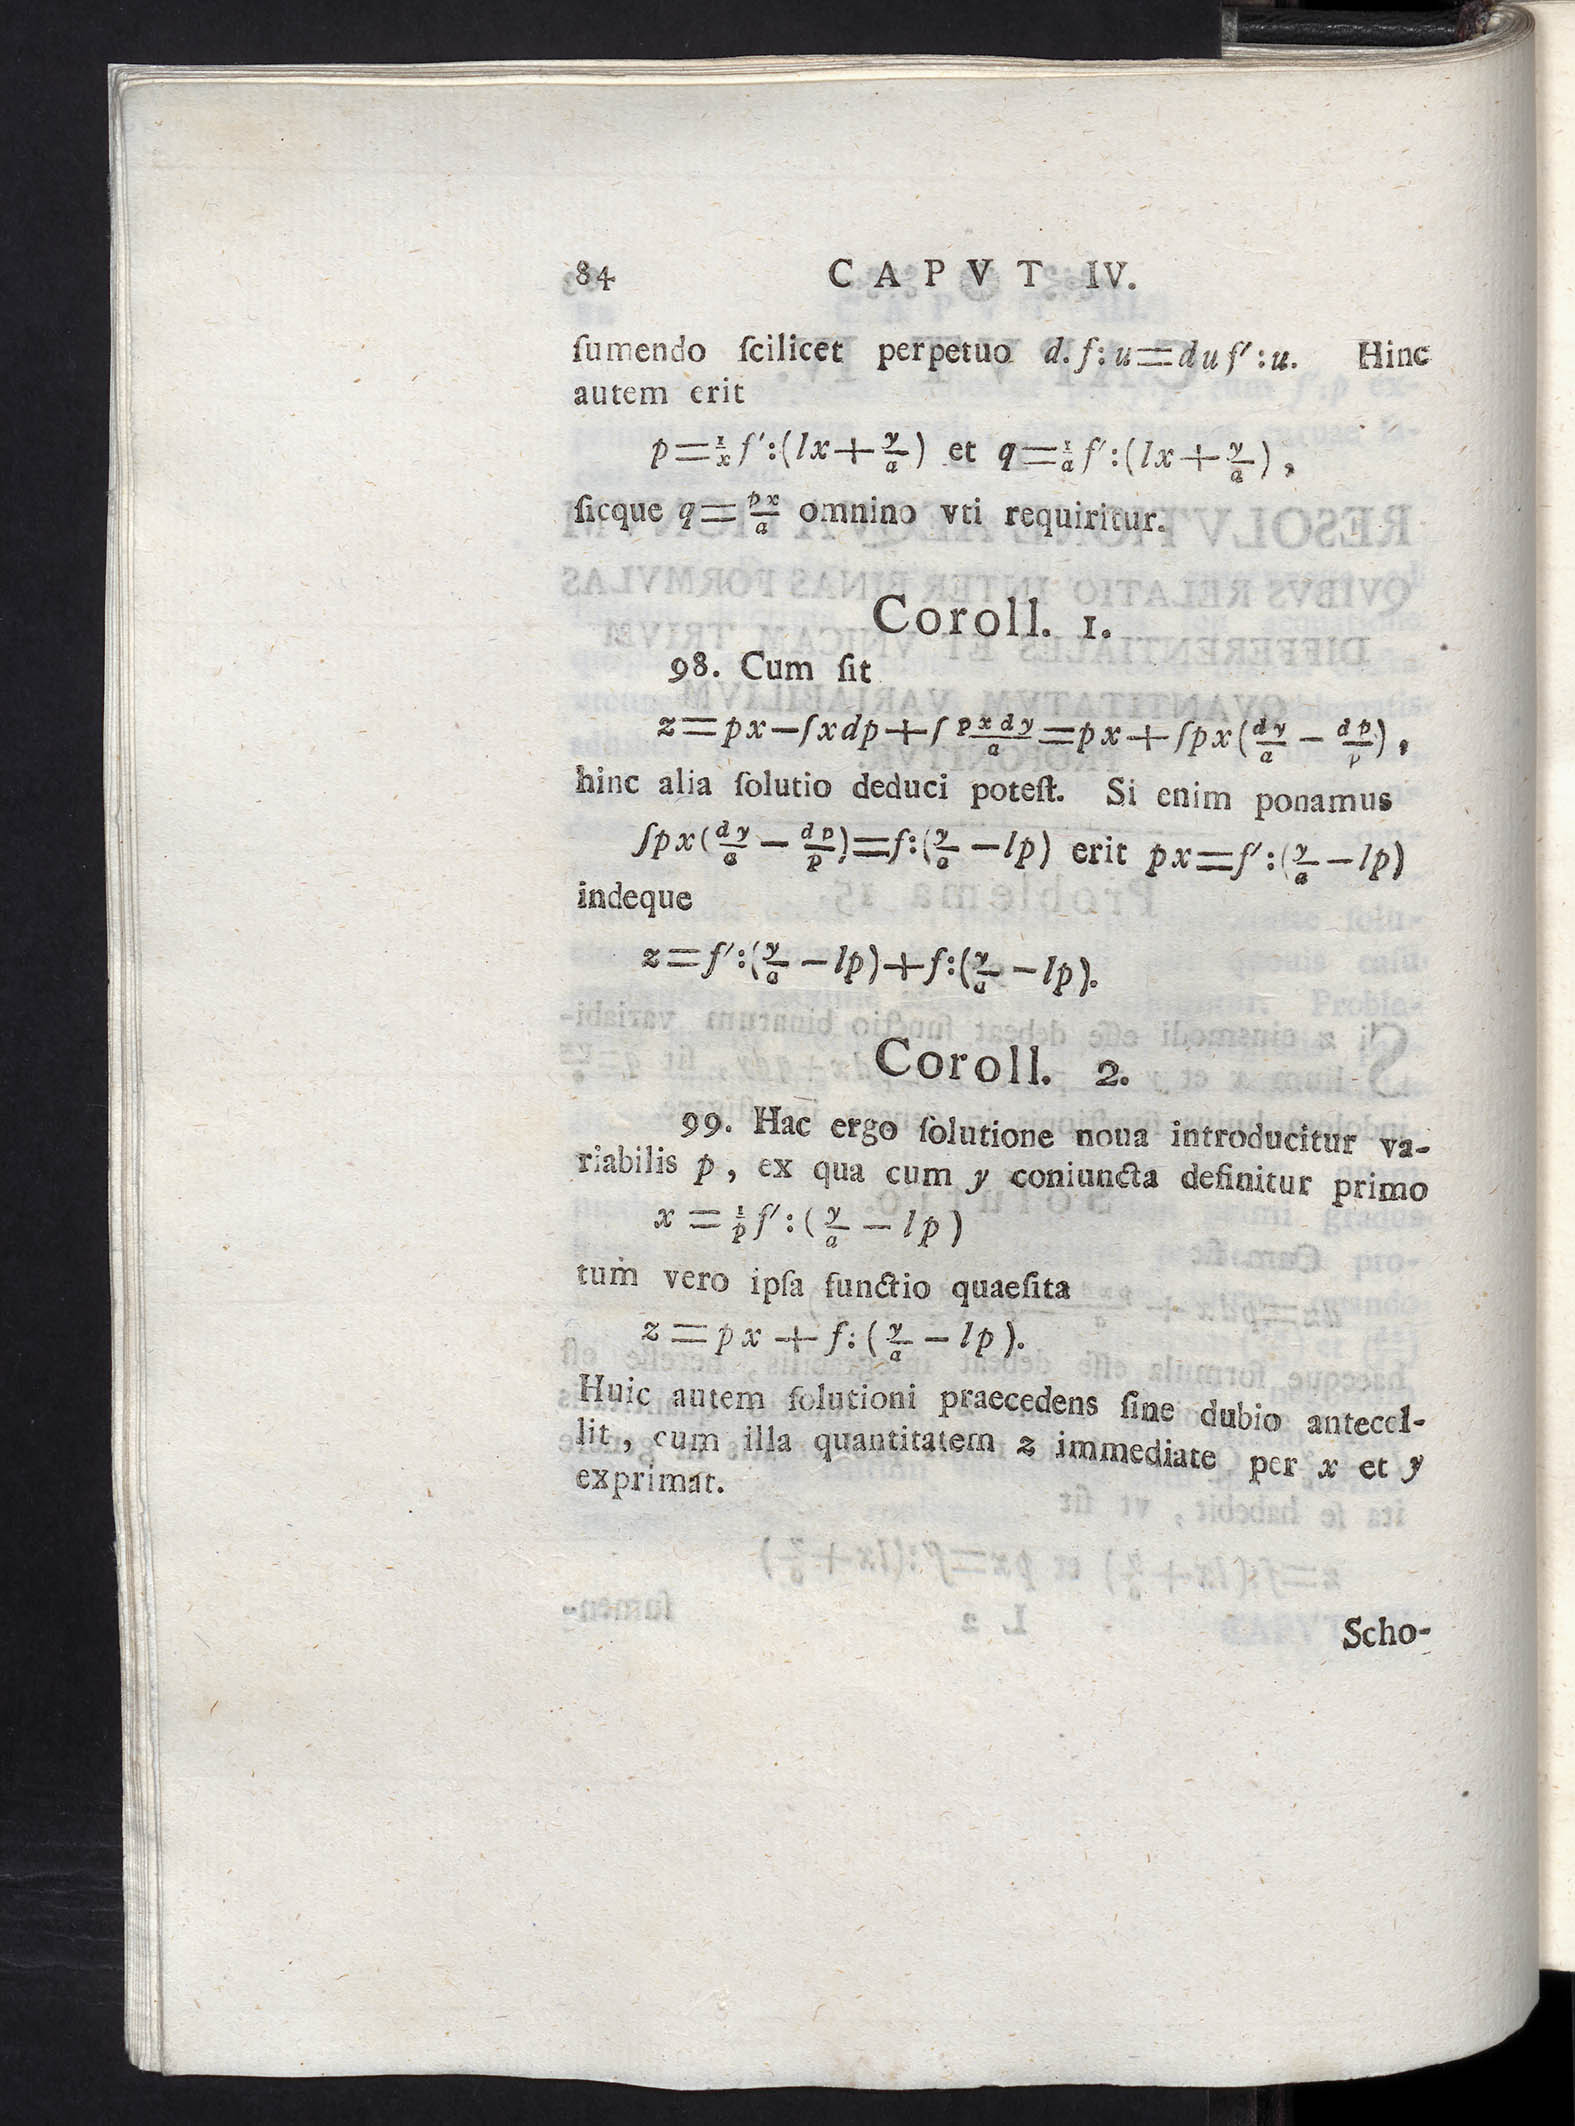 84 CAPVT IV.
ſumendo ſcilicet perpetuo d.f:u=duf′:u. Hinc
autem erit
p=\frac{1}{x}f′:(lx+\frac{y}{a}) et q=\frac{1}{a}f′:(lx+\frac{y}{a}),
ſicque q=\frac{px}{a} omnino vti requiritur.
Coroll. 1.
98. Cum ſit
z=px−∫xdp+∫\frac{pxdy}{a}=px+∫px(\frac{dy}{a}−\frac{dp}{p}),
hinc alia ſolutio deduci poteſt. Si enim ponamus
∫px(\frac{dy}{a}−\frac{dp}{p})=f:(\frac{y}{a}−lp) erit px=f′:(\frac{y}{a}−lp)
indeque
z=f′:(\frac{y}{a}−lp)+f:(\frac{y}{a}−lp).
Coroll. 2.
99. Hac ergo ſolutione noua introducitur va-
riabilis p, ex qua cum y coniuncta definitur primo
x=\frac{1}{p}f′:(\frac{y}{a}−lp)
tum vero ipſa functio quaeſita
z=px+f:(\frac{y}{a}−lp).
Huic autem ſolutioni praecedens ſine dubio antecel-
lit, cum illa quantitatem z immediate per x et y
exprimat.
Scho-